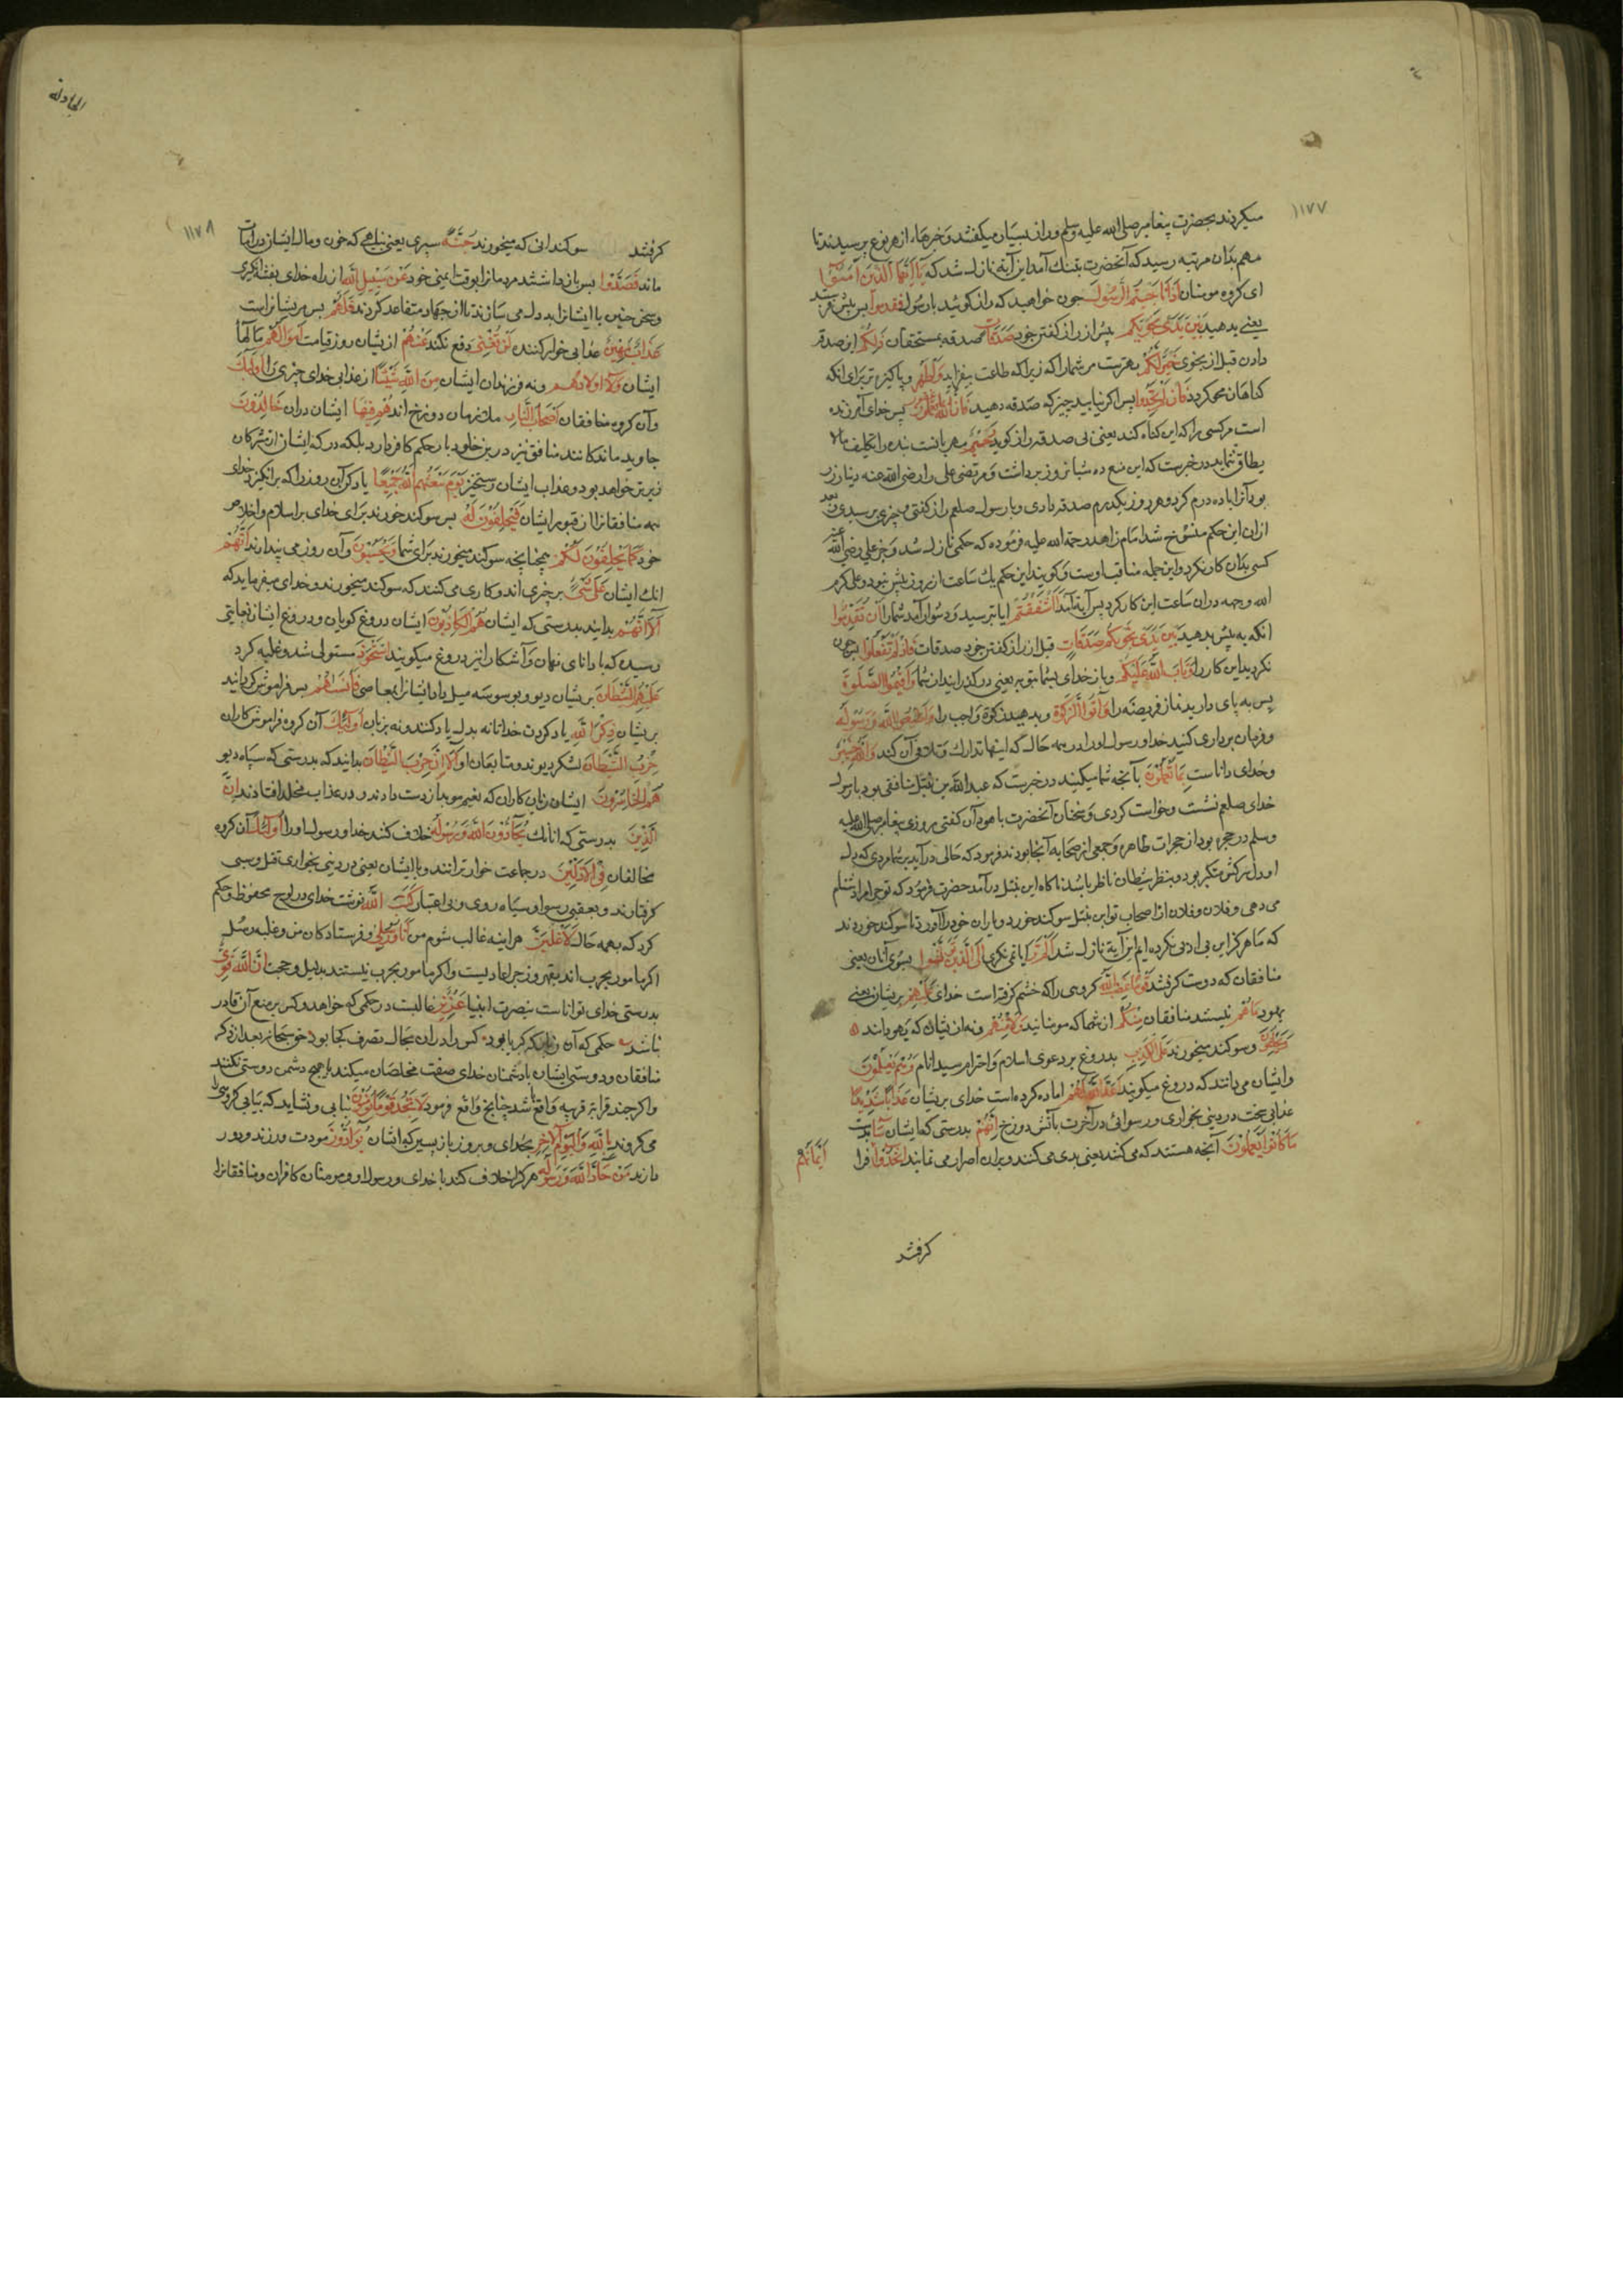 ١١٧٧
میکردند بحضرت پیغامبر صلی الله علیه وسلم و راز بسیار میکفتند و خبرها از هر نوع پرسیدند تا
مهم بدان مرتبه رسید که آنحضرت بتنک آمد این آیة نازل شد که یَا اَیُّهَا الَّذِینَ اٰمَنُوۤا
ای کروه مومنان اِذَا نَاجَیْتُمُ الرَّسُولَ چون خواهید که راز کوئید با رسول فَقَدِّمُوا پس پیش فرستید
یعنی بدهید بَیْنَ یَدَیْ نَجْوٰیکُمْ پیش از راز کفتن خود صَدَقَةً صدقه بمستحقان ذٰلِکُمْ این صدقه
دادن قبل از نجوی خَیْرٌ لَکُمْ بهترست مر شما را که زیرا که طاعت بیفزاید وَاَطْهَرُ و پاکیزه تر برای انکه
کناهان محو کردد فَاِنْ لَمْ تَجِدُوا پس اکر نیابید چیز که صدقه دهید فَاِنَّ اللّٰهَ غَفُورٌ پس خدای آمرزنده
است مر کسی را که این کناه کند یعنی بی صدقه راز کوید رَحِیْمٌ مهربانست بنده را تکلیف ما لا
یطاق ننماید در خبرست که این منع ده شبانروز برداشت و مرتضی علی را رضی الله عنه دینار زر
بود آنرا باده درم کرد و هر روز یکدرم صدقه دادی و با رسول صلعم راز کفتی و چیزی پرسیدی بعد
ازان این حکم منسوخ شد امام زاهد رحمة الله علیه فرموده که حکمی نازل شد و جز علی رضی الله عنه
کسی بدان کار نکرد و این جمله مناقب اوست و کویند این حکم یك ساعت از روز بیش نبود و علی کرم
الله وجهه دران ساعت این کار کرد پس آیة آمد ءَاَشْفَقْتُمْ ایا ترسید و دشوار آمد شما را اَنْ تُقَدِّمُوا
انکه به پیش بدهید بَیْنَ یَدَیْ نَجْوٰیکُمْ صَدَقَاتٍ قبل از راز کفتن خود صدقات فَاِذْ لَمْ تَفْعَلُوا پس چون
نکردید این کار را وَتَابَ اللّٰهُ عَلَیْکُمْ و باز خدای بشما توبه یعنی درکذرانید از شما فَاَقِیْمُوا الصَّلٰوةَ
پس به پای دارید نماز فریضه را وَاٰتُوا الزَّکٰوةَ و بدهید زکوة واجب را وَاَطِیْعُوا اللّٰهَ وَرَسُولَهُ
و فرمان برداری کنید خدا و رسول او را در همه حال که اینها تدارك و تلافی آن کند وَاللّٰهُ خَبِیْرٌ
و خدای داناست بِمَا تَعْمَلُونَ بآنچه شما میکنید در خبرست که عبد الله بن نبتل منافقی بود با رسول
خدای صلعم نشست و خواست کردی و سخنان آنحضرت با یهودان کفتی روزی پیغامبر صلی الله علیه
وسلم در حجره بود از حجرات طاهره و جمعی از صحابه آنجا بودند فرمود که حالی در آید بر شما مردی که دل
او دل سرکش متکبر بود و بنظر شیطان ناظر باشد ناکاه این نبتل درآمد حضرت فرمود که تو چرا مرا دشنام
می دهی و فلان و فلان از اصحاب تو ابن نبتل سوکند خورد و یاران خود را آورد تا سوکند خوردند
که ما هرکز این بی ادبی نکرده ایم این آیة نازل شد اَلَمْ تَرَ ایا نمی نکری اِلَی الَّذِیْنَ تَوَلَّوْا بسوی آنان یعنی
منافقان که دوست کرفتند قَوْمًا غَضِبَ اللّٰهُ کروهی را که خشم کرفته است خدای عَلَیْهِمْ بریشان یعنی
یهود مَا هُمْ نیستند منافقان مِنْکُمْ از شما که مومنانید وَلَا مِنْهُمْ و نه از یشان که یهودانند
وَیَحْلِفُونَ و سوکند میخورند عَلَی الْکَذِبِ بدروغ بر دعوی اسلام و احترام سید انام وَهُمْ یَعْلَمُونَ
و ایشان می دانند که دروغ میکویند اَعَدَّ اللّٰهُ لَهُمْ اماده کرده است خدای بریشان عَذَابًا شَدِیْدًا
عذابی سخت در دینی بخواری و رسوائی و در آخرت بآتش دوزخ اِنَّهُمْ بدرستی که ایشان سَاءَ بدست
مَا کَانُوا یَعْمَلُونَ آنچه هستند که می کنند یعنی بدی می کنند و بران اصرار می نمایند اِتَّخَذُوا فرا اَیْمَانَهُمْ
کرفتند
المجادله
١١٧٨
کرفتند سوکندانی که میخورند جُنَّةً سپری یعنی پناهی که خون و مال ایشان در امان
ماند فَصَدُّوا پس بازداشتند مردمانرا بوقت ایمنی خود عَنْ سَبِیْلِ اللّٰهِ از راه خدای بفتنه انکیزی
و سخن چنین با ایشانرا بددل می سازند تا از جهاد متقاعد کردند فَلَهُمْ پس مریشانراست
عَذَابٌ مُهِیْنٌ عذابی خوار کننده لَنْ تُغْنِیَ دفع نکند عَنْهُمْ از یشان روز قیامت اَمْوَالُهُمْ مالهاء
ایشان وَلَا اَوْلَادُهُمْ و نه فرزندان ایشان مِنَ اللّٰهِ شَیْئًا از عذاب خدای چیزی را اُولٰئِكَ
و آن کروه منافقان اَصْحَابُ النَّارِ ملازمان دوزخ اند هُمْ فِیْهَا ایشان دران خَالِدُونَ
جاوید ماندکانند منافق نیز درین خلود با رحکم کافر دارد بلکه درکه ایشان از مشرکان
زیرتر خواهد بود و عذاب ایشان سختتر یَوْمَ یَبْعَثُهُمُ اللّٰهُ جَمِیْعًا یاد کن آن روز را که برانکیزد خدای
همه منافقانرا از قبور ایشان فَیَحْلِفُونَ لَهُ پس سوکند خورند برای خدای بر اسلام و اخلاص
خود کَمَا یَحْلِفُونَ لَکُمْ همچنانچه سوکند میخورند برای شما وَیَحْسَبُونَ و آن روز می پندارند اَنَّهُمْ
انك ایشان عَلٰی شَیْءٍ بر چیزی اند و کاری می کنند که سوکند میخورند و خدای میفرماید که
اَلَا اِنَّهُمْ بدانید بدرستی که ایشان هُمُ الْکَاذِبُونَ ایشان دروغ کویان و دروغ ایشان بغایتی
رسیده که با دانای نهان و آشکارا نیز دروغ میکویند اِسْتَحْوَذَ مستولی شد و غلبه کرد
عَلَیْهِمُ الشَّیْطَانُ بریشان دیو و بوسوسه میل داد ایشانرا بمعاصی فَاَنْسٰهُمْ پس فراموش کردانید
بریشان ذِکْرَ اللّٰهِ یاد کردن خدا تا نه بدل یاد کنند و نه بزبان اُولٰئِكَ آن کروه فراموش کاران
حِزْبُ الشَّیْطَانِ لشکر دیوند و متابعان او اَلَا اِنَّ حِزْبَ الشَّیْطَانِ بدانید که بدرستی که سپاه دیو
هُمُ الْخَاسِرُونَ ایشان زیان کاران که نعیم موبد از دست دادند و در عذاب مخلد افتادند اِنَّ
الَّذِیْنَ بدرستی که انانك یُحَادُّونَ اللّٰهَ وَرَسُولَهُ خلاف کنند خدا و رسول او را اُولٰئِكَ آن کروه
مخالفان فِی الْاَذَلِّیْنَ در جماعت خوارترانند و با ایشان یعنی در دینی بخواری قتل و سبی
کرفتارند و بعقبی رسوا و سیاه روی و بی اعتبار کَتَبَ اللّٰهُ نوشت خدای در لوح محفوظ و حکم
کرد که بهمه حال لَاَغْلِبَنَّ هراینه غالب شوم من اَنَا وَرُسُلِی و فرستادکان من و غلبه رسل
اکر مامور بحرب اند بقهر و زجر اعادیست و اکر مامور بحرب نیستند بدلیل و حجت اِنَّ اللّٰهَ قَوِیٌّ
بدرستی خدای تواناست بنصرت انبیا عَزِیْزٌ غالبست در حکمی که خواهد و کس بر منع آن قادر
نباشد حکمی که آن کبریا بود کس را دران مجال تصرف کجا بود حق سبحانه بعد از ذکر
منافقان و دوستی ایشان با دشمنان خدای صفت مخلصان میکند با هیچ دشمن دوستی نکنند
و اکر چند قرابه قریبه واقع شد چنانچه واقع فرمود لَا تَجِدُ قَوْمًا یُؤْمِنُونَ نیابی و نشاید که بیابی کروهی را
می کروند بِاللّٰهِ وَالْیَوْمِ الْاٰخِرِ بخدای و بروز بازپسین که ایشان یُوَادُّونَ مودت ورزند و دور
دارند مَنْ حَادَّ اللّٰهَ وَرَسُولَهُ هر که را خلاف کند با خدای و رسول او و مومنان کافران و منافقانرا